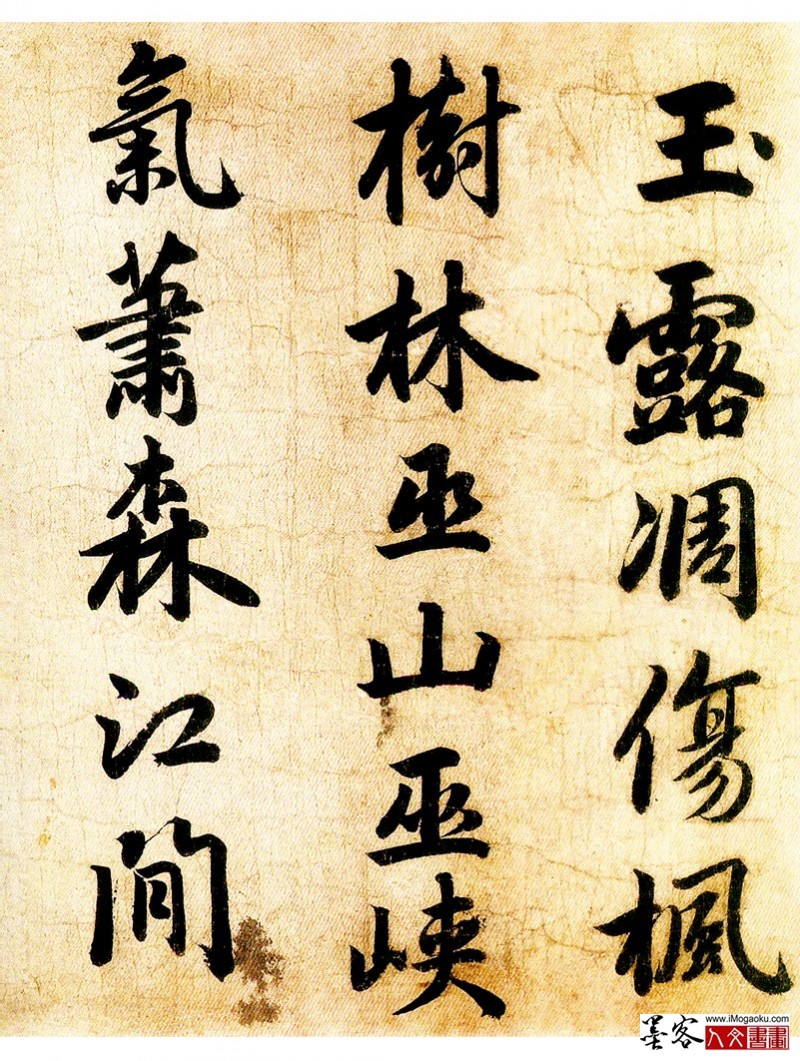 玉露凋傷楓
樹林巫山巫峽
氣蕭森江間
www.iMogaoku.com
墨客
人文書畫